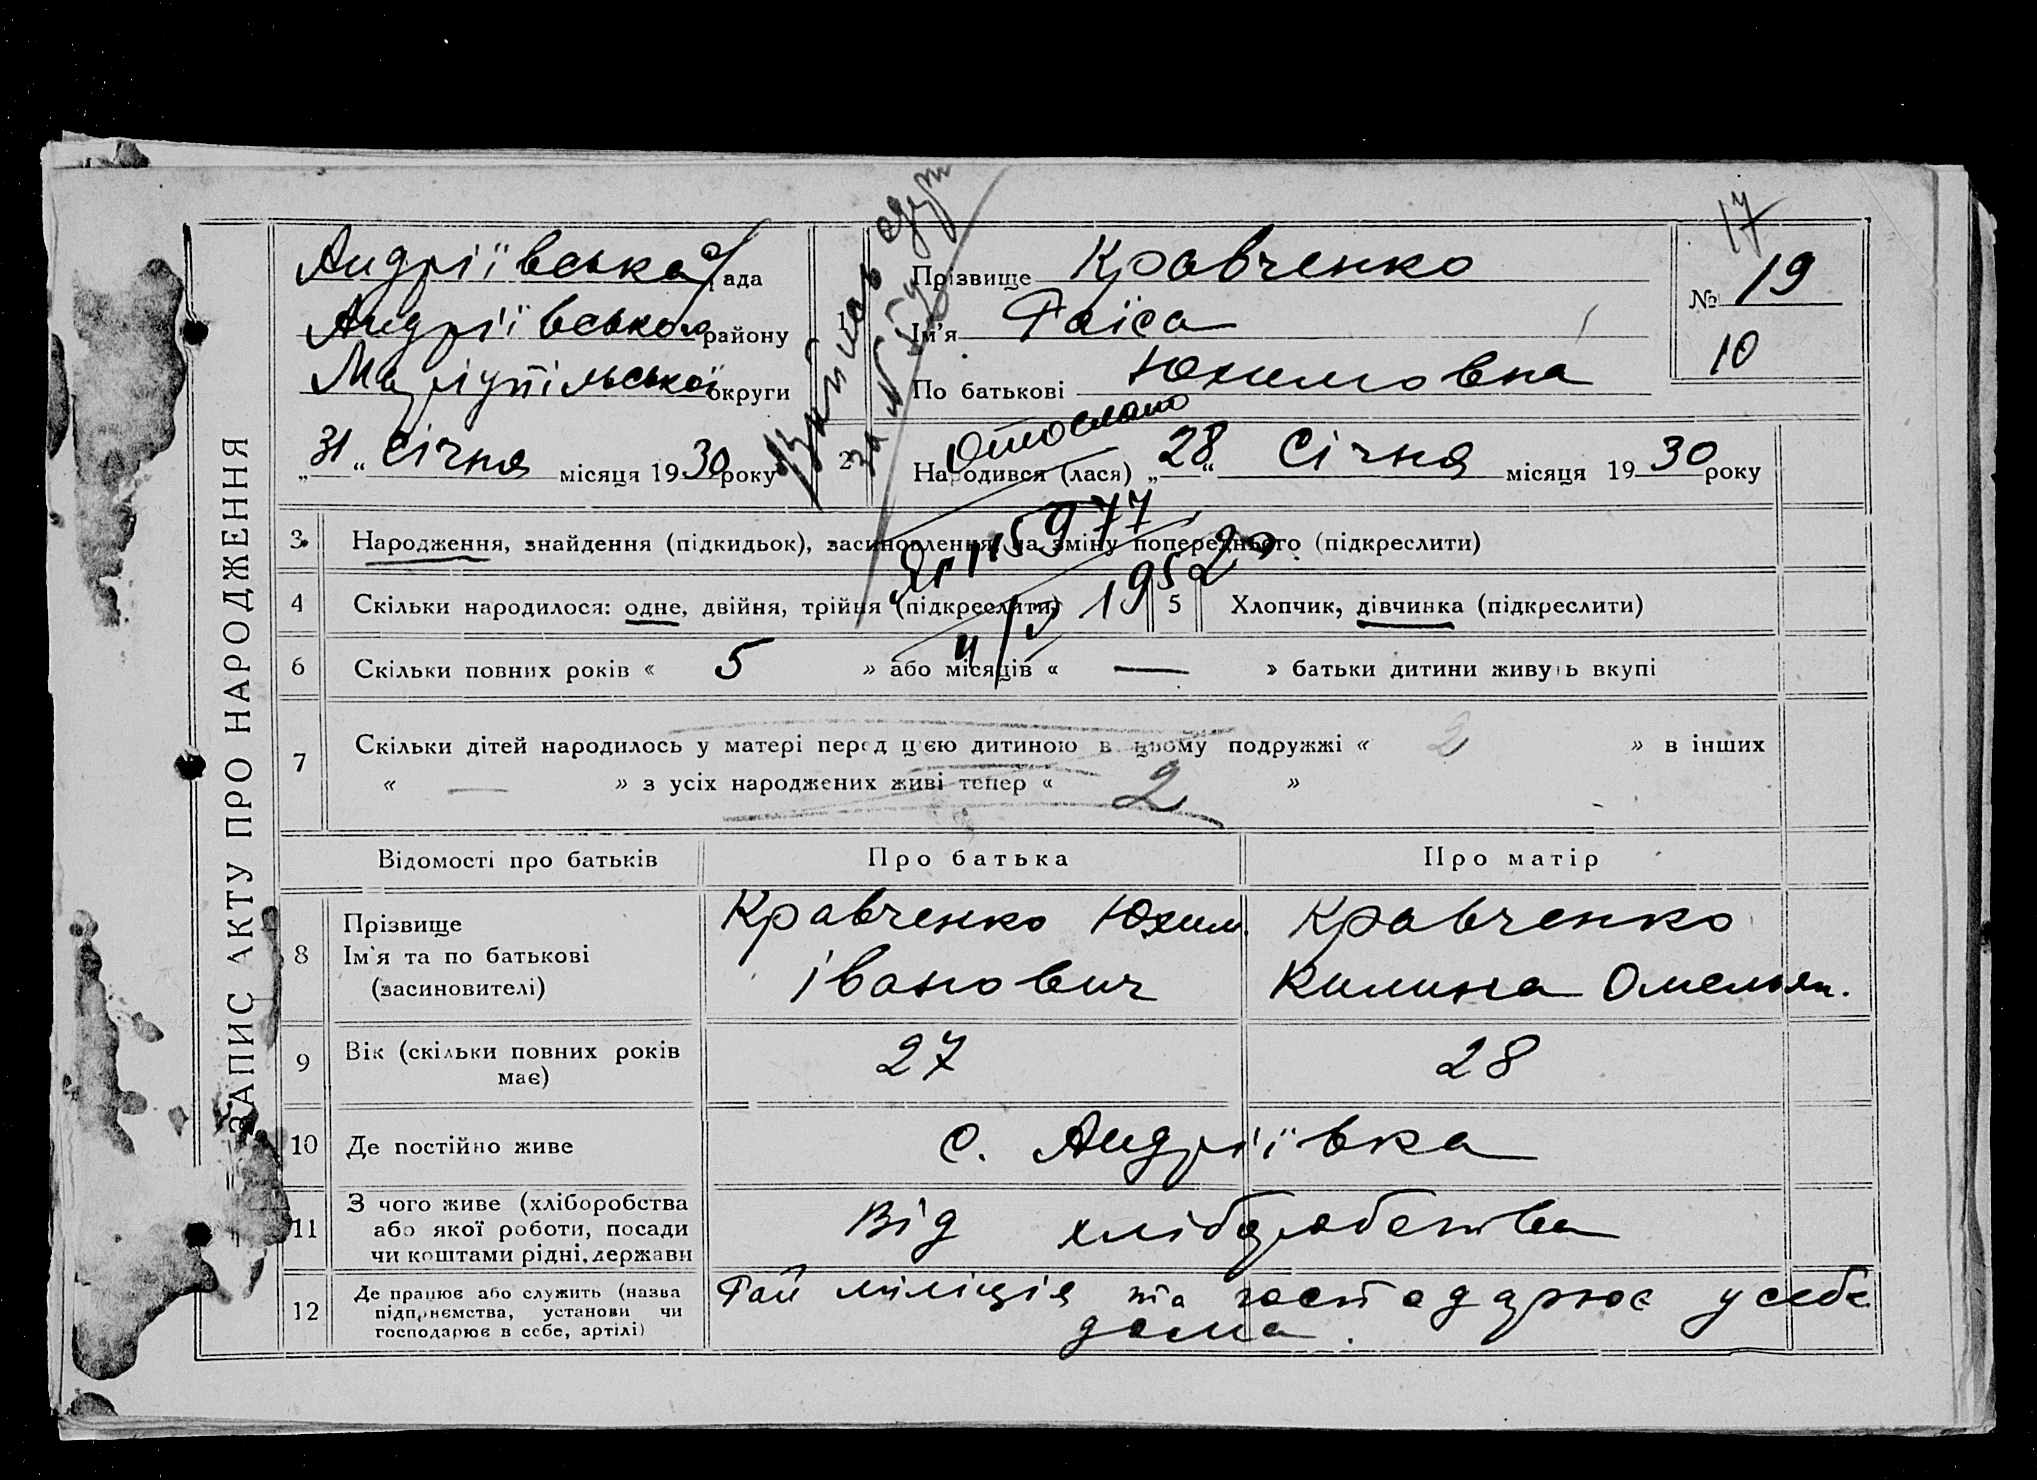 ЗАПИС АКТУ ПРО НАРОДЖЕННЯ
17
Андріївська с/рада
Андріївського району
Маріупільської округи
Прізвище Кравченко
Ім'я Раїса
По батькові Юхимовна
№ 19
10
„31“ Січня місяця 1930 року
2 Народився (лася) „28“ Січня місяця 1930 року
Отослано
115977
3. Народження, знайдення (підкидьок), засиновлення, на зміну попереднього (підкреслити)
4 Скільки народилося: одне, двійня, трійня (підкреслити)
1952
5 Хлопчик, дівчинка (підкреслити)
6 Скільки повних років « 5 » або місяців « — » батьки дитини живуть вкупі
7 Скільки дітей народилось у матері перед цією дитиною в цьому подружжі « 2 » в інших
« — » з усіх народжених живі тепер « 2 »
Відомості про батьків Про батька Про матір
8 Прізвище
Ім'я та по батькові
(засиновителі)
Кравченко Юхим
Іванович
Кравченко
Килина Омельян.
9 Вік (скільки повних років
має)
27 28
10 Де постійно живе с. Андріївка
11 З чого живе (хліборобства
або якої роботи, посади
чи коштами рідні, держави
Від хліборобства
12 Де працює або служить (назва
підприємства, установи чи
господарює в себе, артілі)
Рай міліція та господарює у себе
дома.